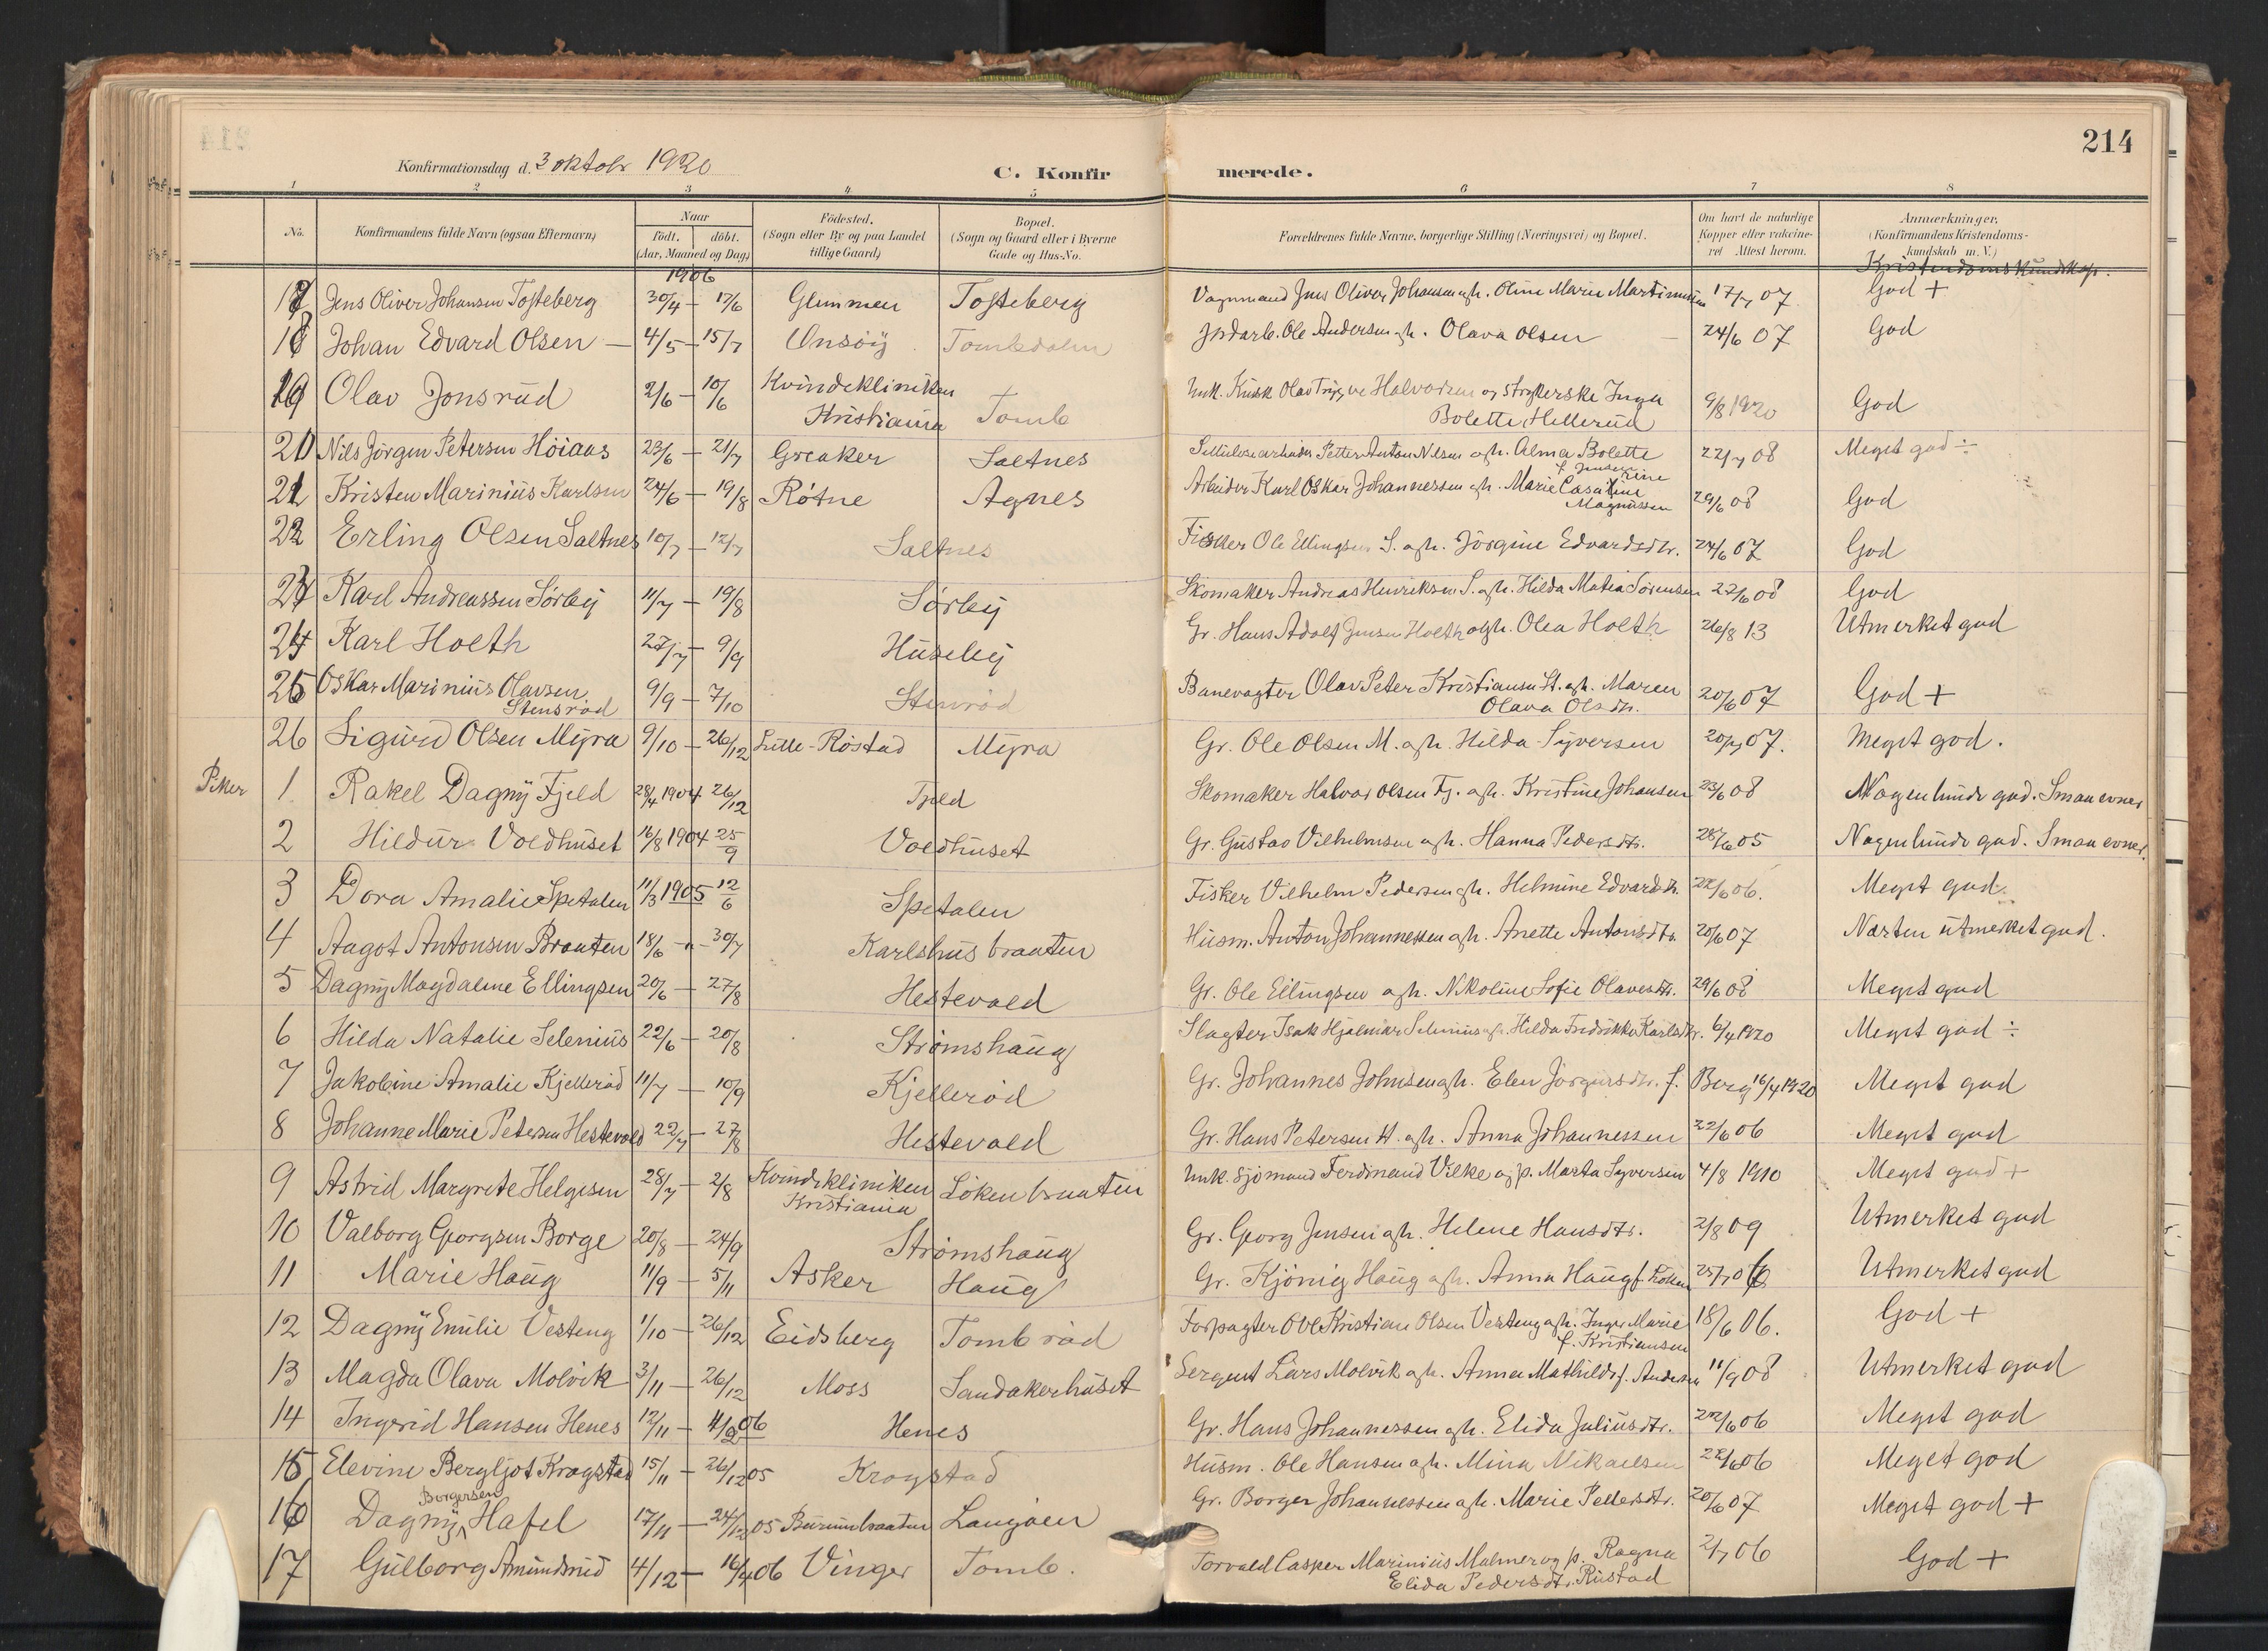 214
Konfirmationsdag d. 3 oktobr 1920
C. Konfirmerede.
1 2 3 4 5 6 7 8
No. Konfirmandens fulde Navn (ogsaa Efternavn) Naar födt. döbt. (Aar, Maaned og Dag) Födested. (Sogn eller By og paa Landet tillige Gaard) Bopæl. (Sogn og Gaard eller i Byerne Gade og Hus-No. Forældrenes fulde Navne, borgerlige Stilling (Næringsvei) og Bopæl. Om havt de naturlige Kopper eller vakcineret Attest herom. Anmærkninger. (Konfirmandens Kristendomskundskab m. V.)
1906 Kristendomskundskap.
17 Jens Oliver Johansen Tofteberg 30/4 – 17/6 Glemmen Tofteberg Vognmand Jens Oliver Johansen og h. Oline Marie Martinsen 17/7 07 God +
18 Johan Edvard Olsen – 4/5 – 15/7 Onsöy Tombdalen Jordarb. Ole Andersen og h. Olava Olsen 24/6 07 God
19 Olav Jonsrud 2/6 – 10/6 Kvindekliniken Kristiania Tomb Unk. Kusk Olav Trygve Halvorsen og Strykerske Inga Bolette Hellerud 9/8 1920 God
20 Nils Jörgen Petersen Höiaas 23/6 – 21/7 Greaker Saltnes Sellulosearbeider Petter Anton Nilsen og h. Alma Bolette f. Jensen 22/7 08 Meget god ÷
21 Kristen Marinius Karlsen 24/6 – 19/8 Rötne Agnes Arbeider Karl Oskar Johannessen og h. Marie Casarine Magnussen 29/6 08 God
22 Erling Olsen Saltnes 10/7 – 12/7 Saltnes Fisker Ole Ellingsen S. og h. Jörgine Edvardsdtr. 24/6 07 God
23 Karl Andreassen Sörby 11/7 – 19/8 Sörby Skomaker Andreas Henriksen S. og h. Hilda Matea Sörensen 22/6 08 God
24 Karl Holth 27/7 – 9/9 Huseby Gr. Hans Adolf Jensen Holth og h. Olea Holth 26/8 13 Utmerket god
25 Oskar Marinius Olavsen Stensröd 9/9 – 7/10 Stenröd Banevagter Olav Peter Kristiansen St. og h. Maren Olava Olsdtr. 20/6 07 God +
26 Sigurd Olsen Myra 9/10 – 26/12 Lille-Röstad Myra Gr. Ole Olsen M. og h. Hilda Syversen 20/7 07. Meget god.
Piker 1 Rakel Dagny Fjeld 28/4 1904 26/12 Fjeld Skomaker Halvor Olsen Fj. og h. Kristine Johansen 23/6 08 Nogenlunde god. Smaa evner
2 Hildur Voldhuset 16/8 1904 25/9 Voldhuset Gr. Gustav Vilhelmsen og h. Hanna Pedersdtr. 28/6 05 Nogenlunde god. Smaa evner.
3 Dora Amalie Spetalen 11/3 1905 12/6 Spetalen Fisker Vilhelm Pedersen og h. Helmine Edvardsdtr. 22/6 06. Meget god.
4 Aagot Antonsen Braaten 18/6 –"– 30/7 Karlshusbraaten Husm. Anton Johannessen og h. Anette Antonsdtr. 20/6 07 Næsten utmerket god.
5 Dagny Magdalene Ellingsen 20/6 – 27/8 Hestevold Gr. Ole Ellingsen og h. Nikoline Sofie Olavesdtr. 29/6 08 Meget god
6 Hilda Natalie Selenius 22/6 – 20/8 Strömshaug Slagter Isak Hjalmar Selenius og h. Hilda Fredrikke Karlsdtr. 6/4 1920 Meget god ÷
7 Jakobine Amalie Kjelleröd 11/7 – 10/9 Kjelleröd Gr. Johannes Johnsen og h. Elen Jörginsdtr. f. Berg 16/4 1920 Meget god
8 Johanne Marie Petersen Hestevold 22/7 – 27/8 Hestevold Gr. Hans Petersen H. og h. Anna Johannessen 22/6 06 Meget god
9 Astrid Margrete Helgesen 28/7 – 2/8 Kvindekliniken Kristiania Lökenbraaten Unk. Sjömand Ferdinand Vilke og p. Marta Syversen 4/8 1910 Meget god +
10 Valborg Georgsen Borge 20/8 – 24/9 Strömshaug Gr. Georg Jensen og h. Helene Hansdtr. 2/8 09 Utmerket god
11 Marie Haug 11/9 – 5/11 Asker Haug Gr. Kjönig Haug og h. Anna Haug f. 25/7 06 Utmerket god
12 Dagny Emilie Vesteng 1/10 – 26/12 Eidsberg Tombröd Forpagter Ole Kristian Olsen Vesteng og h. Inger Marie f. Kristiansen 18/6 06. God +
13 Magda Olava Molvik 3/11 – 26/12 Moss Sandakerhuset Sergent Lars Molvik og h. Anna Mathilde f. Andersen 11/9 08 Utmerket god
14 Ingerid Hansen Henes 12/11 – 4/2 06 Henes Gr. Hans Johannessen og h. Elida Juliusdtr. 22/6 06 Meget god
15 Elevine Bergljot Krogstad 15/11 – 26/12 05 Krogstad Husm. Ole Hansen og h. Mina Mikaelsen 22/6 06 Meget god
16 Dagny Borgersen Hafel 17/11 – 24/12 05 Burumbraaten Langöen Gr. Borger Johannessen og h. Marie Pettersdtr. 20/6 07 Meget god +
17 Gulborg Amundsrud 4/12 – 16/4 06 Vinger Tomb. Torvald Casper Marinius Malmer og p. Ragna Elida Pedersdtr. Rustad 2/7 06 God +